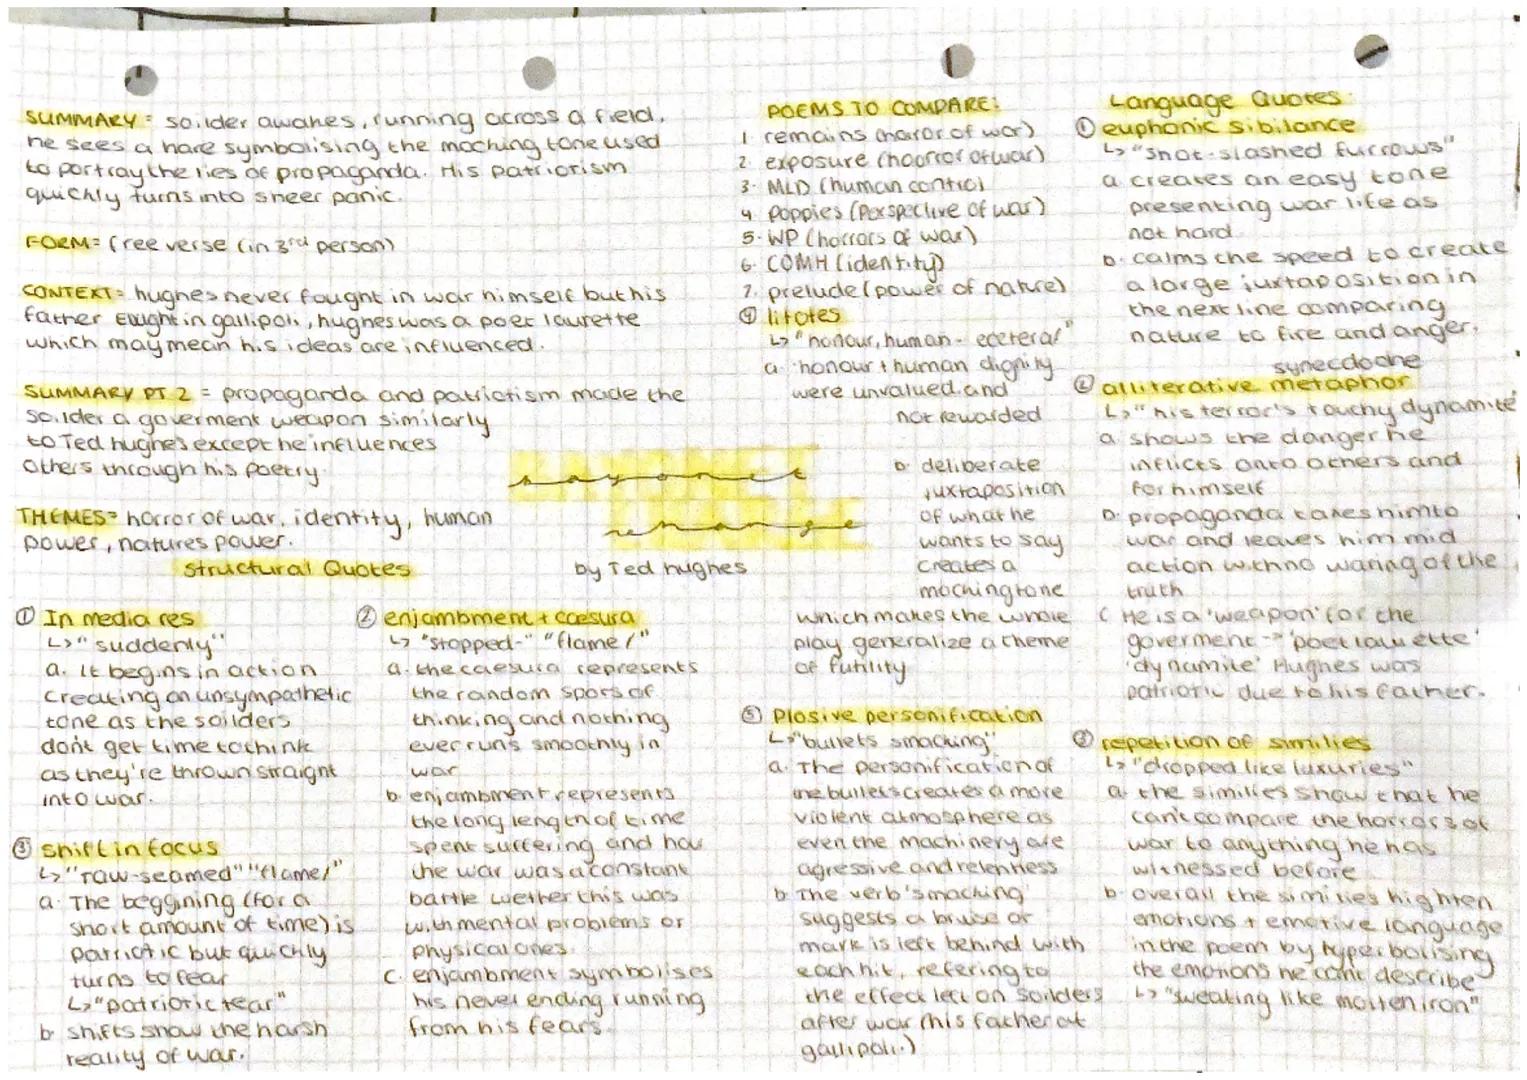 SUMMARY = soilder awakes, running across a field,
he sees a hare symbolising the mocking tone used
to portray the lies of propaganda. His patriotism
quickly turns into sheer panic.
FORM= free verse (in 3rd person)
CONTEXT= hughes never fought in war himself but his
father fought in gallipoli, hughes was a poet laurette
which may mean his ideas are influenced.
SUMMARY PT 2 = propaganda and patriotism made the
soilder a goverment weapon similarly
to Ted hughes except he influences
others through his poetry.
THEMES= horror of war, identity, human
power, natures power.
BAYONET
bayonet
CHARGE
charge
by Ted hughes
Structural Quotes
① In media res
↳ "suddenly"
a. It begins in action
creating an unsympathetic
tone as the soilders
don't get time to think
as they're thrown straight
into war.
③ shift in focus
↳ "raw-seamed" "flame/"
a. The beggining (for a
short amount of time) is
patriotic but quickly
turns to fear
↳ "patriotic tear"
b. shifts show the harsh
reality of war.
② enjambment + caesura
↳ "stopped-" "flame/"
a. the caesura represents
the random spots of
thinking and nothing
ever runs smoothly in
war
b. enjambment represents
the long length of time
spent suffering and how
the war was a constant
battle wether this was
with mental problems or
physical ones.
c. enjambment symbolises
his never ending running
from his fears.
POEMS TO COMPARE:
1. remains (horor of war)
2. exposure (hoorror of war)
3. MLD (human control
4. poppies (perspective of war)
5. WP (horrors of war)
6. COMH (identity)
7. prelude (power of nature)
④ litotes
↳ "honour, human- ecetera/"
a. honour + human dignity
were unvalued and
not rewarded
b. deliberate
juxtaposition
of what he
wants to say
creates a
mocking tone
which makes the whole
play generalize a theme
of futility
⑤ Plosive personification
↳ "bullets smacking"
a. The personification of
the bullets creates a more
violent atmosphere as
even the machinery are
agressive and relentless
b. The verb 'smacking'
suggests a bruise or
mark is left behind with
each hit, refering to
the effect left on soilders
after war (his father at
gallipoli.)
Language Quotes
① euphonic sibilance
↳ "shot-slashed furrows"
a. creates an easy tone
presenting war life as
not hard
b. calms the speed to create
a large juxtaposition in
the next line comparing
nature to fire and anger.
synecdoche
② alliterative metaphor
↳ "his terror's touchy dynamite"
a. shows the danger he
inflicts onto others and
for himself
b. propaganda takes him to
war and leaves him mid
action with no waring of the
truth
c. He is a 'weapon' for the
goverment -> 'poet lauette'
'dynamite' Hughes was
patriotic due to his father.
③ repetition of similies
↳ "dropped like luxuries"
a. the similies show that he
can't compare the horrors of
war to anything he has
witnessed before
b. overall the similies highten
emotions + emotive language
in the poem by hyperbolising
the emotions he can't describe
↳ "sweating like molten iron"